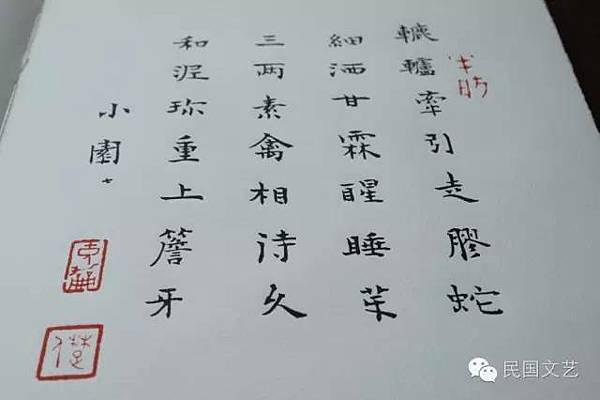 轆轤牽引走膠蛇
細洒甘霖醒睡茶
三两素禽相待久
和泥珎重上簷牙
小園
民国文艺